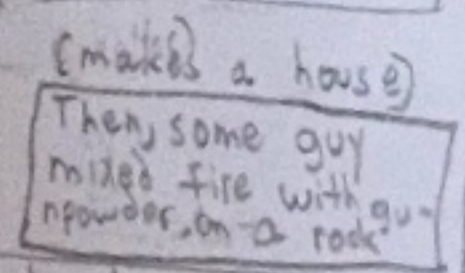 (makes a house)
Then, some guy
mixed fire with gu-
npowder, on a rock